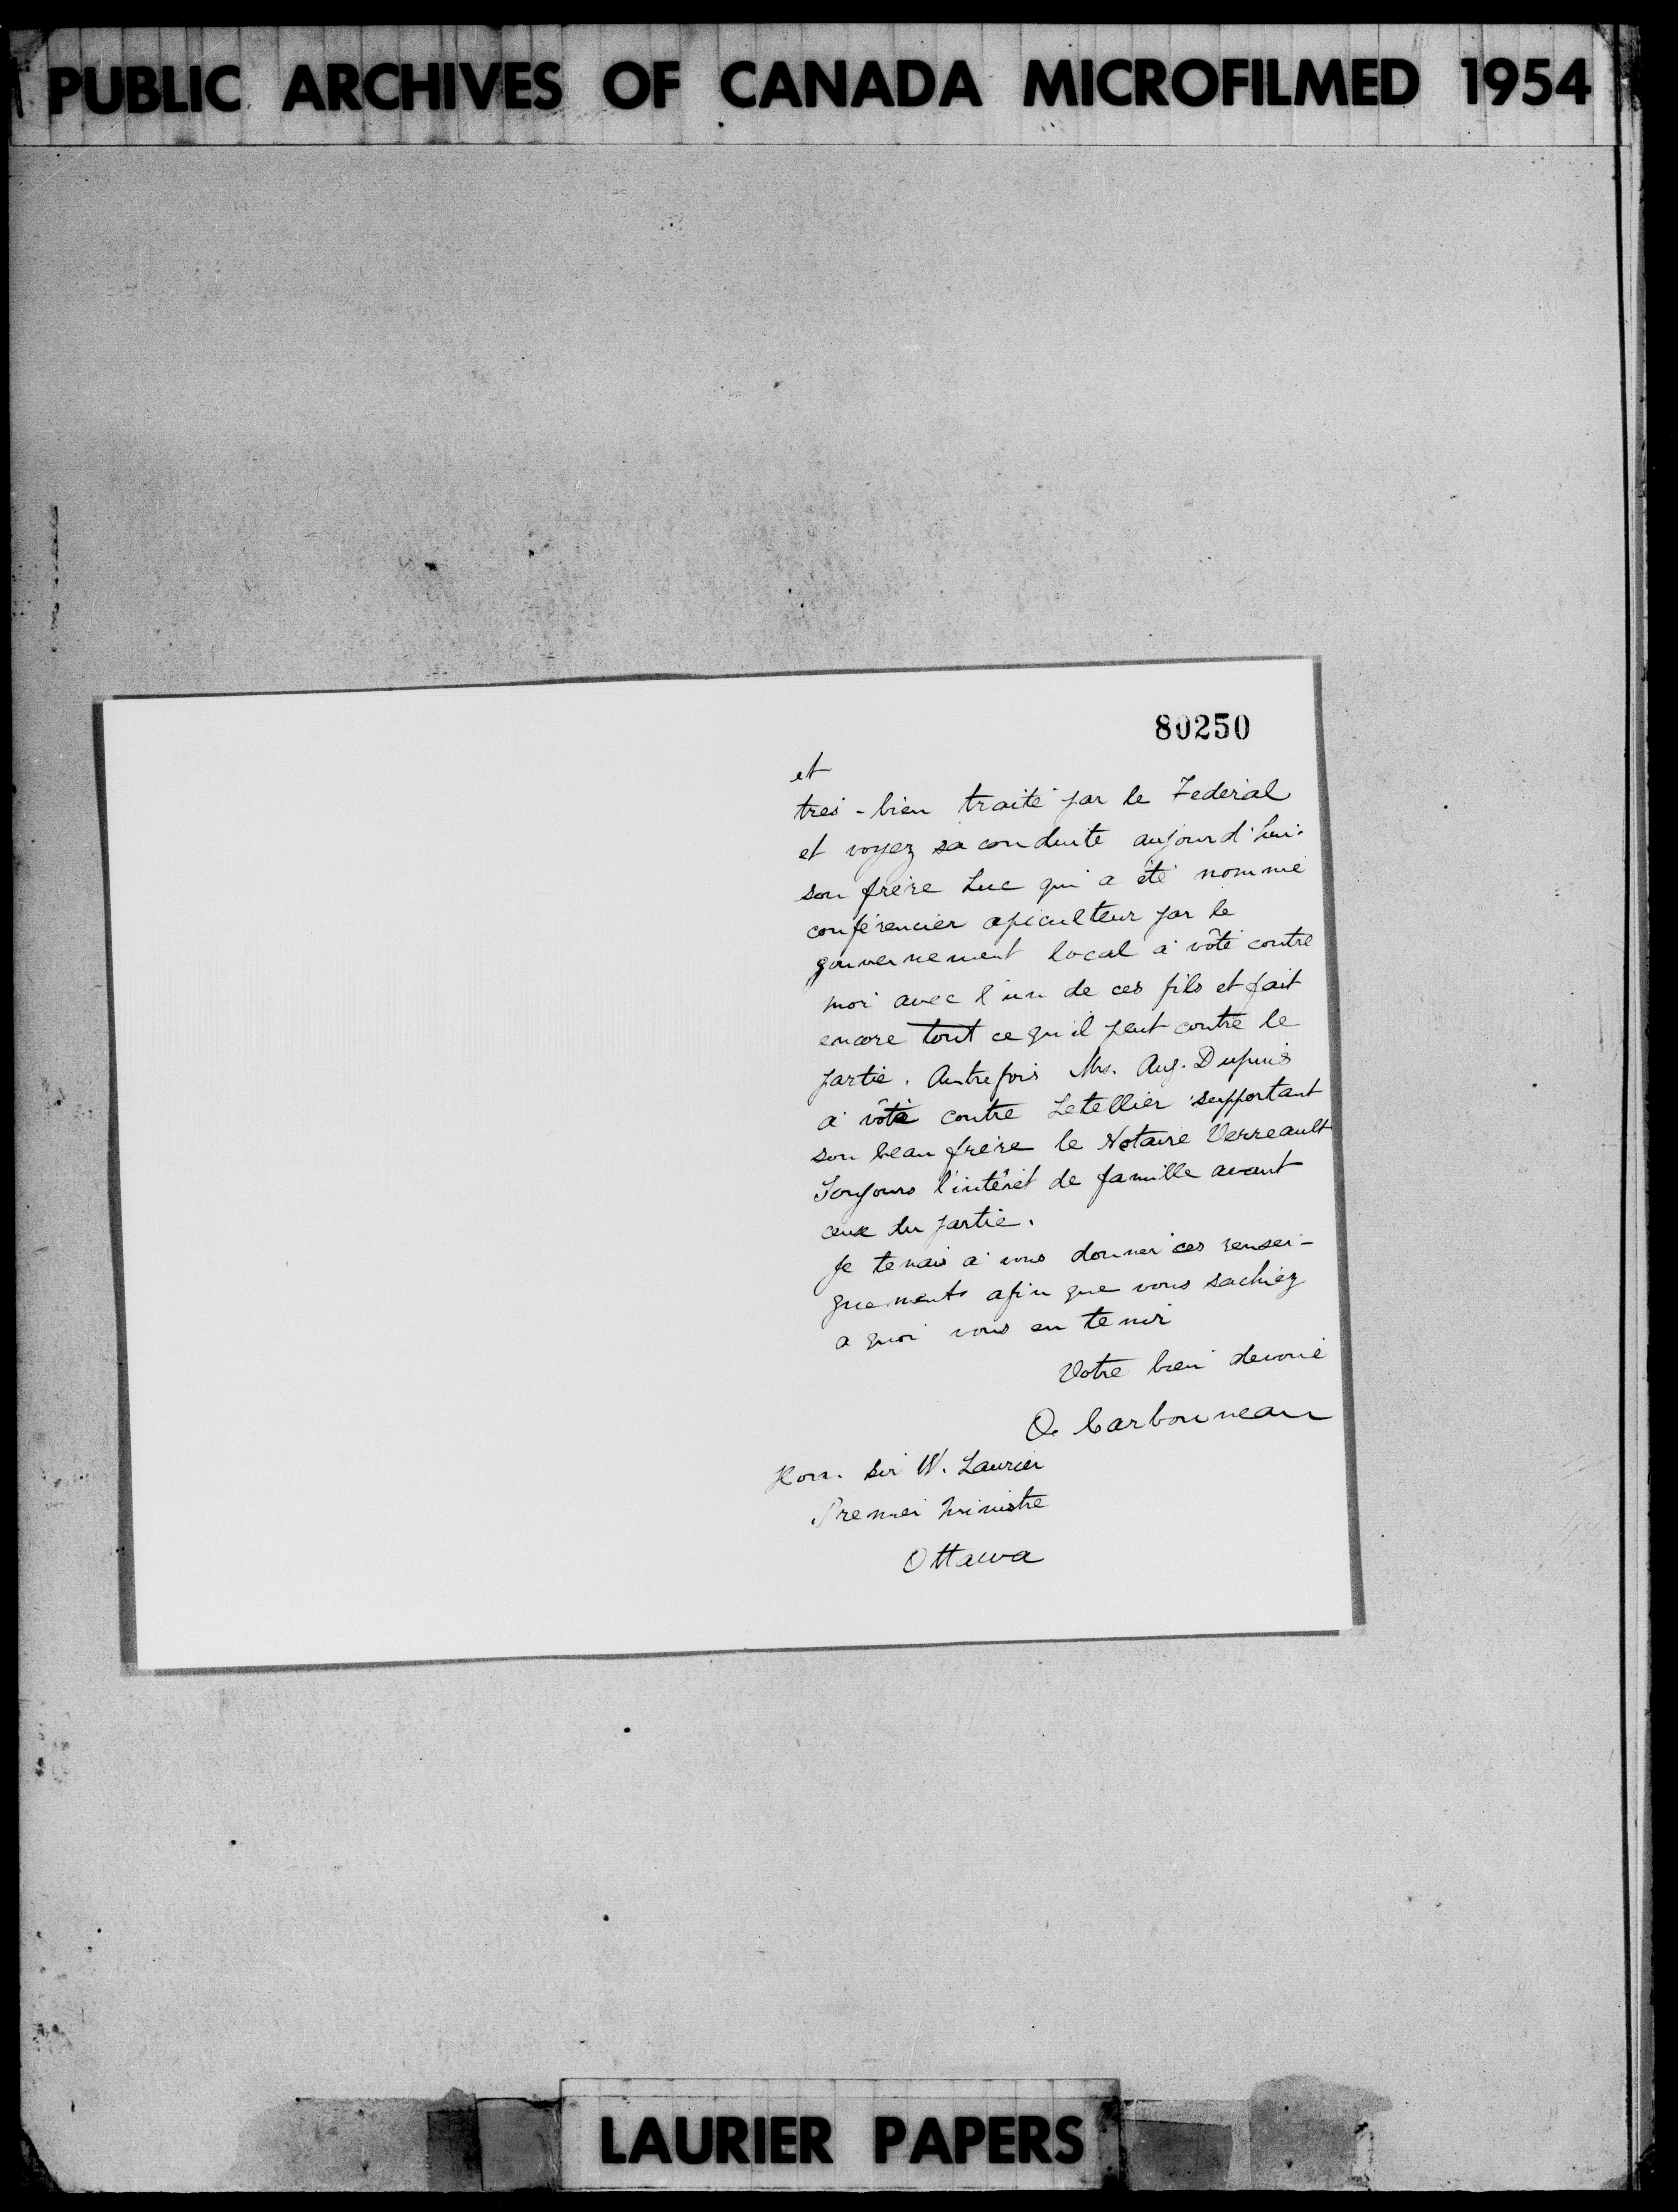 PUBLIC ARCHIVES OF CANADA MICROFILMED 1954
80250
et
tres-bien traité par le Federal
et voyez sa conduite aujourd'hui.
son frère Luc qui a été nommé
conférencier apiculteur par le
gouvernement local a vôté contre
moi avec l'un de ces fils et fait
encore tout ce qu'il peut contre le
partie. Autrefois Mr. Aug. Dupuis
a vôté contre Letellier supportant
son beau frère le Notaire Verreault
Toujours l'intérêt de famille avant
ceux du partie.
Je tenais à vous donner ces rensei-
gnements afin que vous sachiez
a quoi vous en tenir
Votre bien devoué
O. Carbonneau
Hon. Sir W. Laurier
Premier Ministre
Ottawa
LAURIER PAPERS